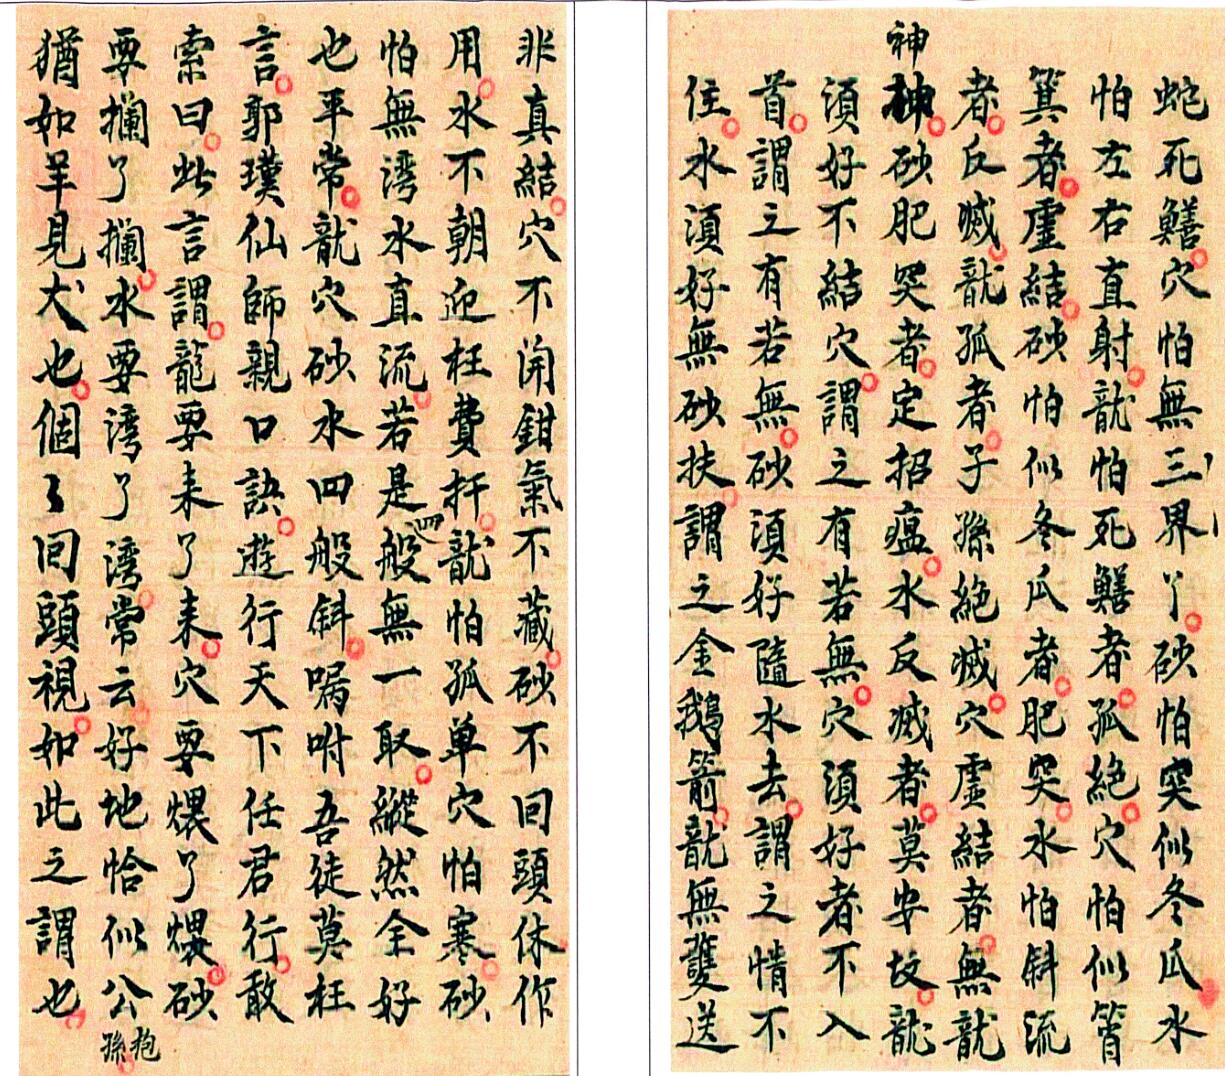 蛇死鱔穴怕無三界丫砂怕突似冬瓜水
怕左右直射龍怕死鱔者孤絕穴怕似筲
箕者虛結砂怕似冬瓜者肥突水怕斜流
者反滅龍孤者子孫絕滅穴虛結者無龍
神
神砂肥突者定招瘟水反滅者莫安坟龍
須好不結穴謂之有若無穴須好者不入
首謂之有若無砂須好隨水去謂之情不
住水須好無砂扶謂之金鵝箭龍無雙送
非真結穴不開鉗氣不藏砂不回頭休作
用水不朝迎枉費扦龍怕孤單穴怕寒砂
怕無湾水直流若是四般無一取縱然全好
也平常龍穴砂水四般斜嘱咐吾徒莫枉
言郭璞仙師親口訣遊行天下任君行敢
索曰此言謂龍要来了来穴要煨了煨砂
要攔了攔水要湾了湾常云好地恰似公抱孫
猶如羊見犬也個々回頭視如此之謂也